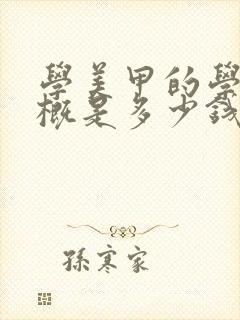 學美甲的學
概是多少錢
孫寒家